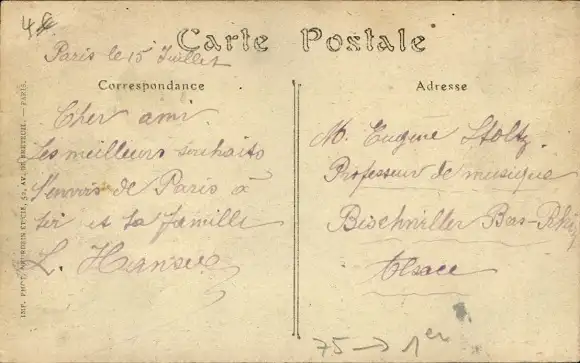 48
Carte Postale
Paris le 15 Juillet
Correspondance
Cher ami
Les meilleurs souhaits
J'envois de Paris à
toi et ta famille
L.
Adresse
M. Eugène Stoltz
Professeur de musique
Bischwiller Bas-Rhin
Alsace
75 → 1er
IMP. PHOT. NEURDEIN ET CIE, 52, AV. DE BRETEUIL. — PARIS.